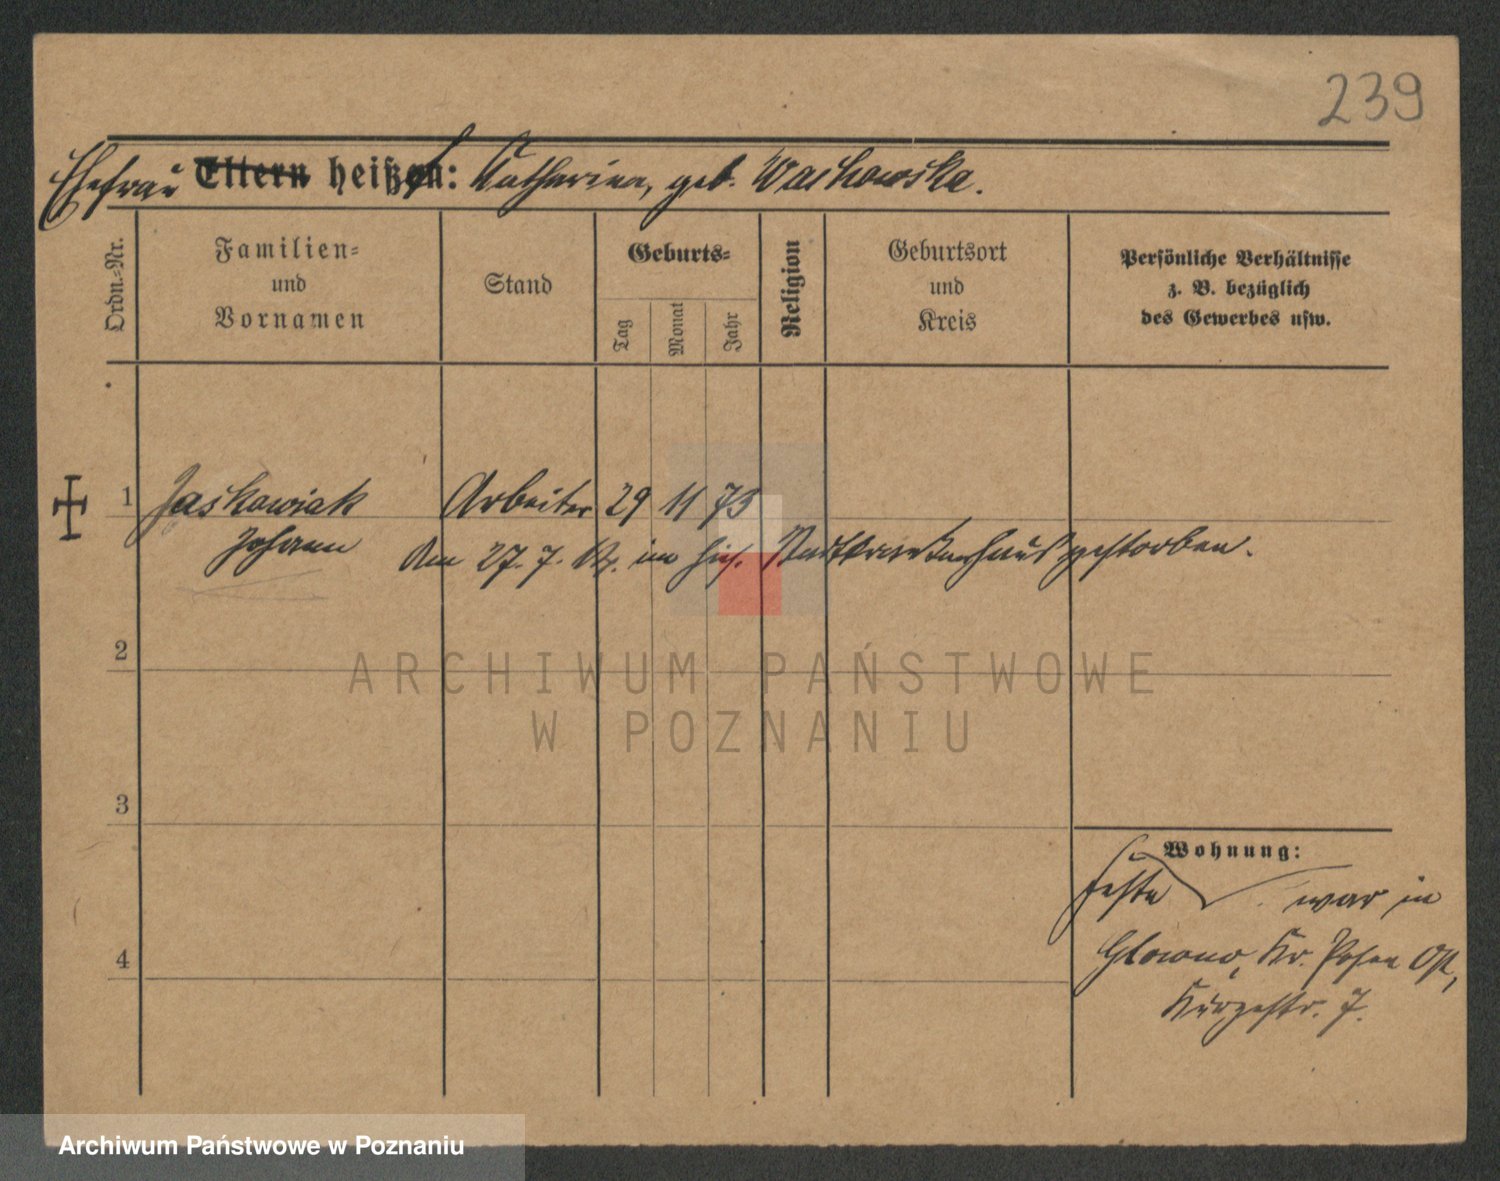 239
Ehefrau Eltern heißt: Katharina, geb. Wachowska.
Ordn.-Nr.
Familien-
und
Vornamen
Stand
Geburts-
Tag
Monat
Jahr
Religion
Geburtsort
und
Kreis
Persönliche Verhältnisse
z. B. bezüglich
des Gewerbes usw.
1 Jaskowiak Arbeiter 29 11 73
Johann Am 27. 7. im hies. Stadtkrankenhaus gestorben.
2
ARCHIWUM PAŃSTWOWE
W POZNANIU
3
Wohnung:
war in
Glowno, Kr. Posen Ost,
Kurzestr. 7.
4
Archiwum Państwowe w Poznaniu